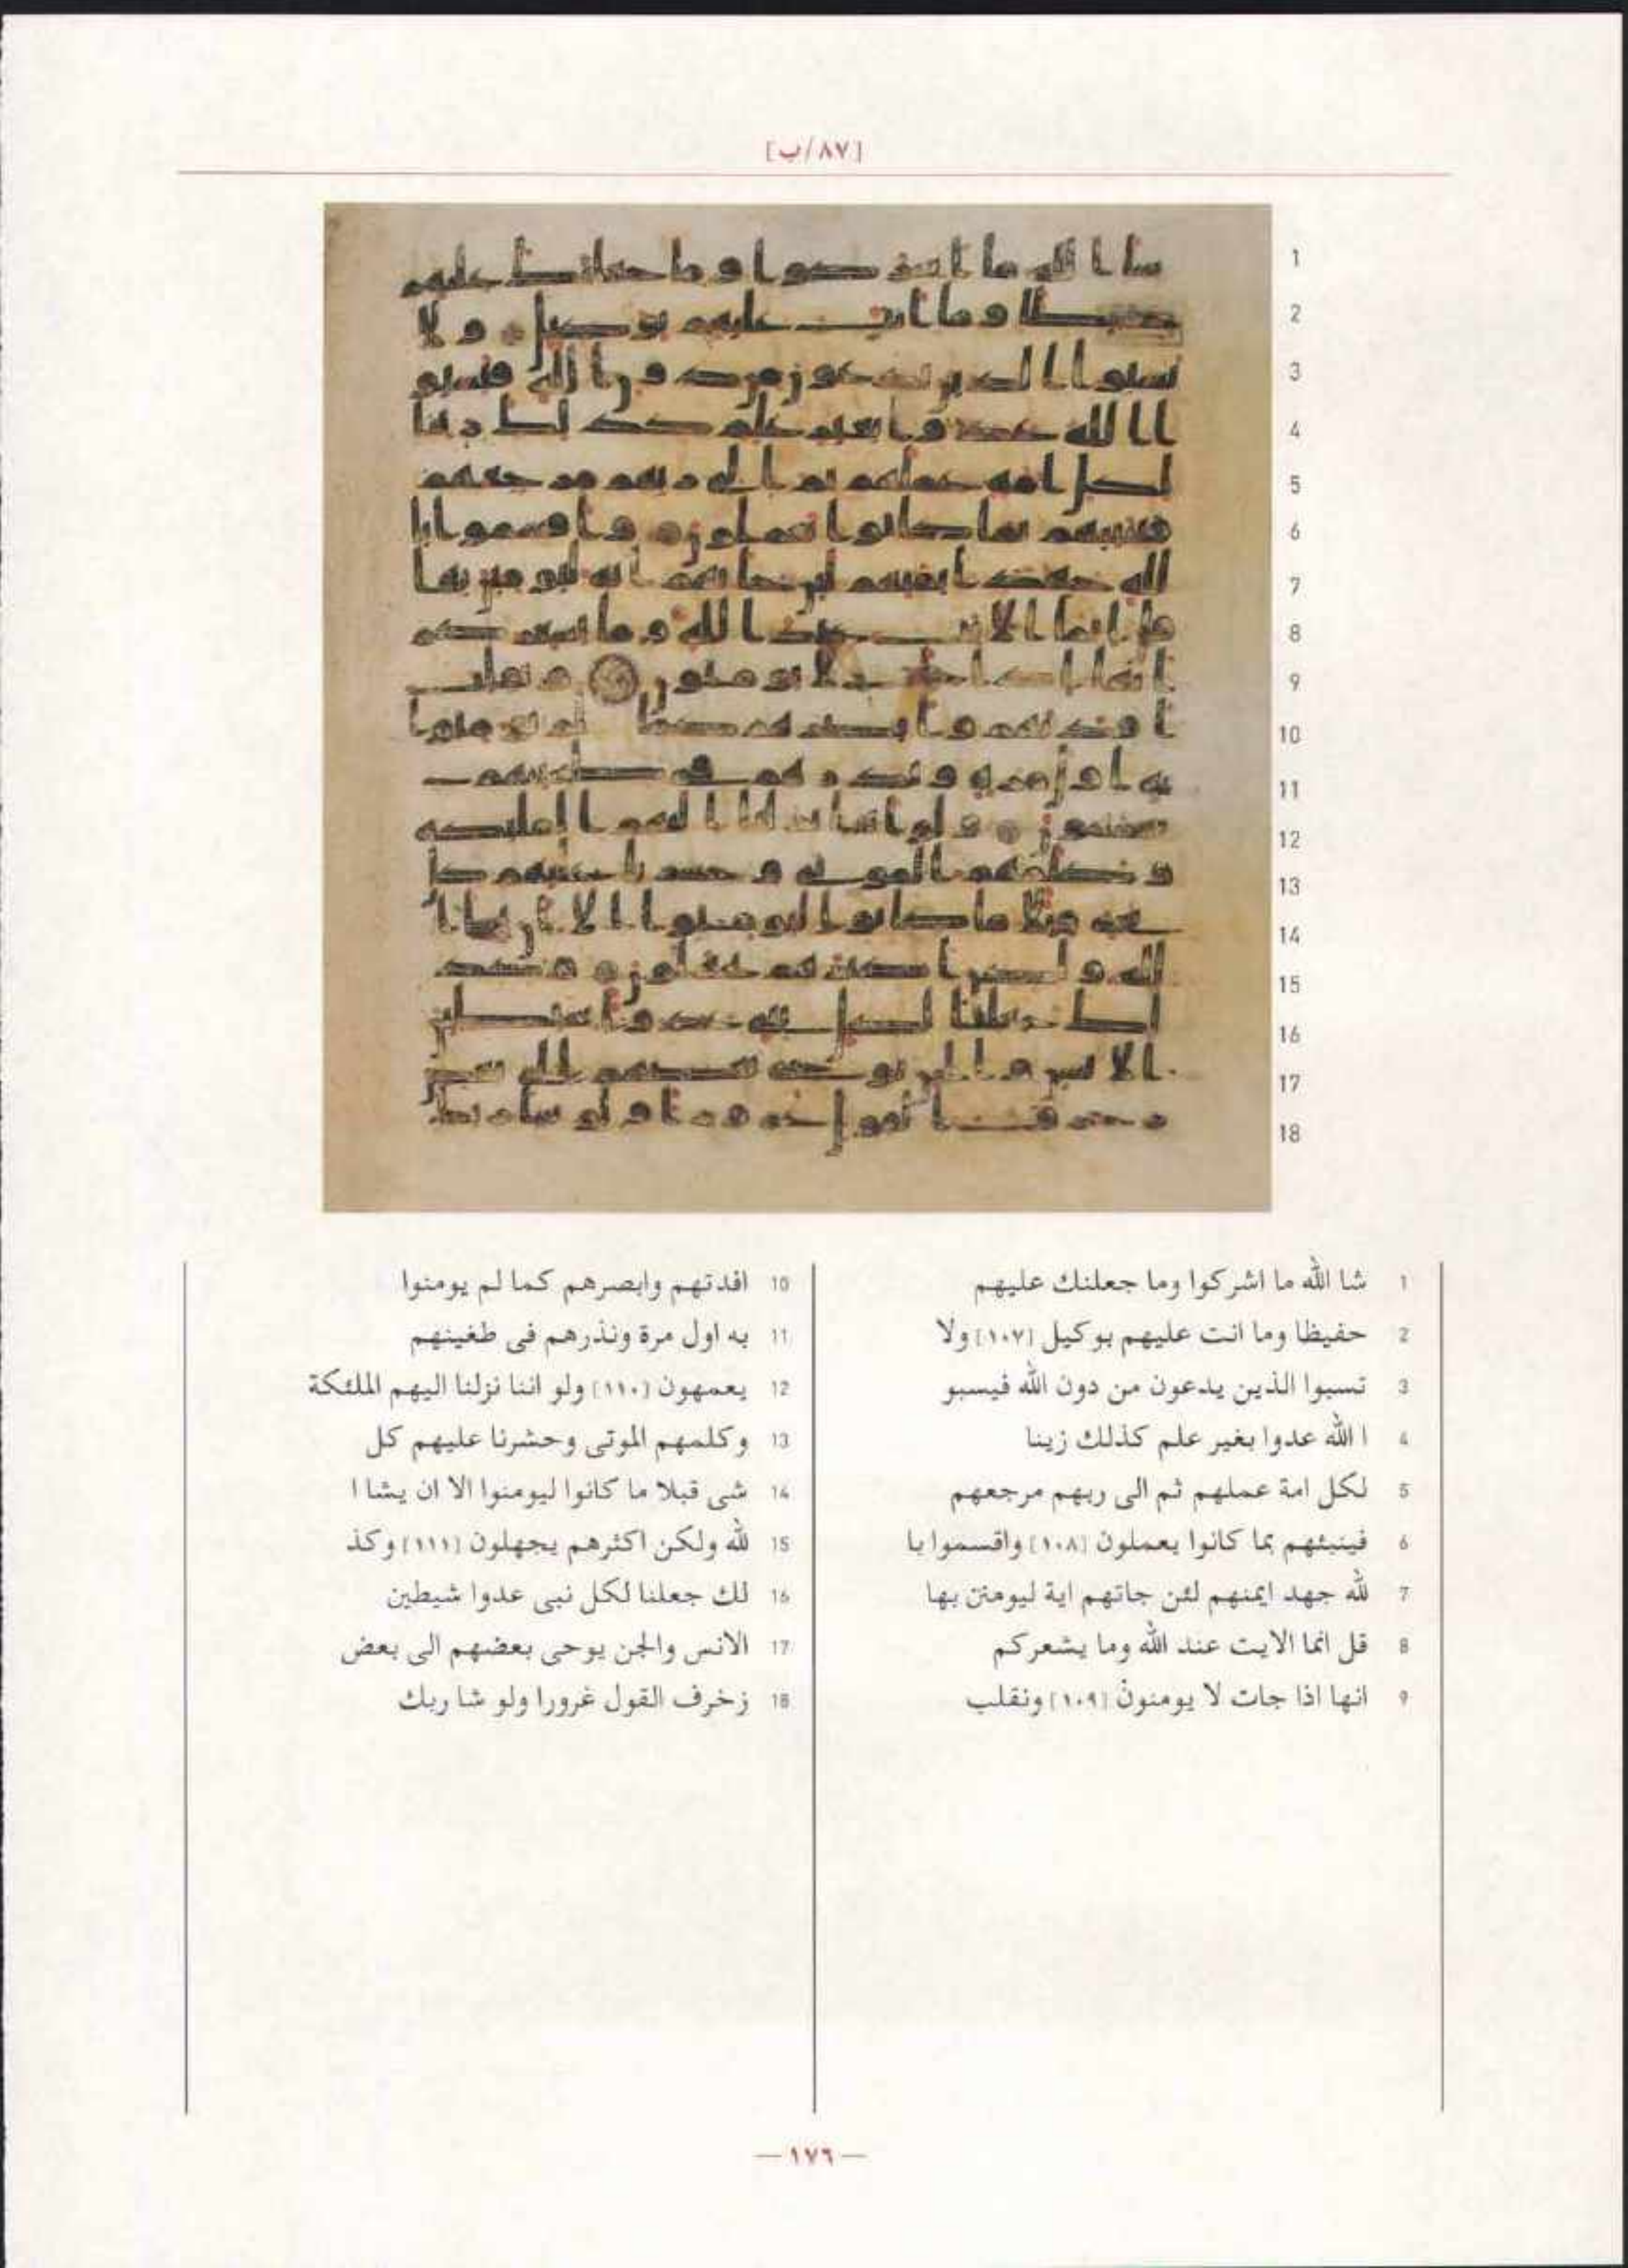 [٨٧/ب]
1 شا الله ما اشركوا وما جعلنك عليهم
2 حفيظا وما انت عليهم بوكيل [١٠٧] ولا
3 تسبوا الذين يدعون من دون الله فيسبو
4 ا الله عدوا بغير علم كذلك زينا
5 لكل امة عملهم ثم الى ربهم مرجعهم
6 فينبئهم بما كانوا يعملون [١٠٨] واقسموا با
7 لله جهد ايمنهم لئن جاتهم اية ليومنن بها
8 قل انما الايت عند الله وما يشعركم
9 انها اذا جات لا يومنون [١٠٩] ونقلب
10 افدتهم وابصرهم كما لم يومنوا
11 به اول مرة ونذرهم فى طغينهم
12 يعمهون [١١٠] ولو اننا نزلنا اليهم الملئكة
13 وكلمهم الموتى وحشرنا عليهم كل
14 شى قبلا ما كانوا ليومنوا الا ان يشا ا
15 لله ولكن اكثرهم يجهلون [١١١] وكذ
16 لك جعلنا لكل نبى عدوا شيطين
17 الانس والجن يوحى بعضهم الى بعض
18 زخرف القول غرورا ولو شا ربك
— ١٧٦ —